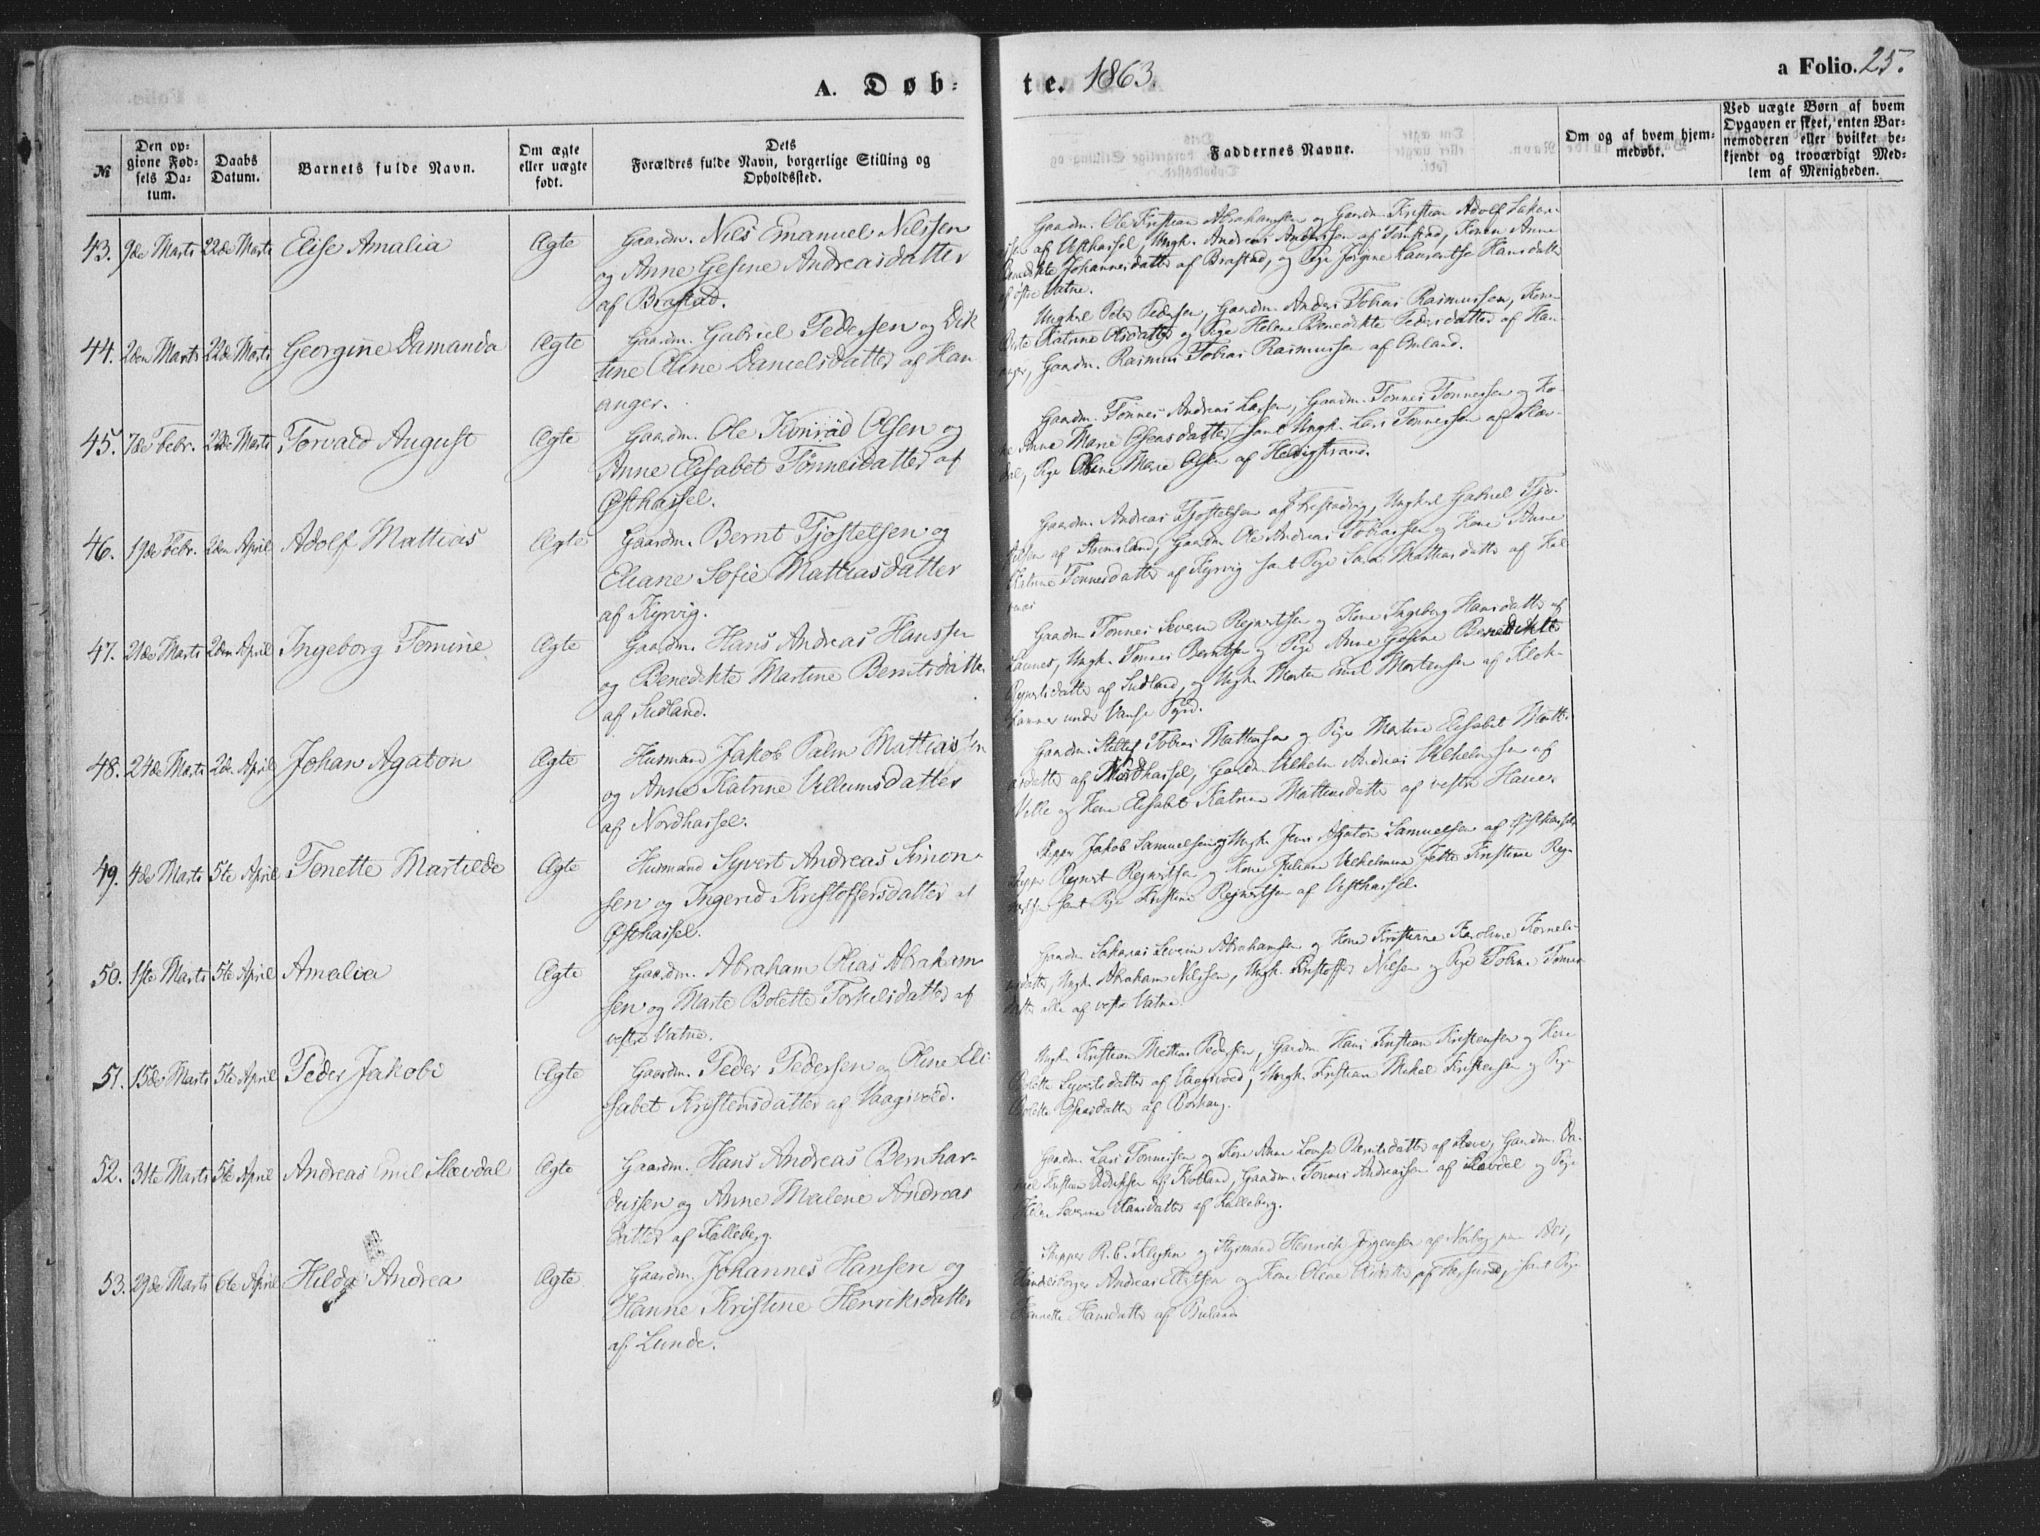 A. Døb-
te. 1863.
a Folio. 25.
№
Den op-
givne Fød-
sels Da-
tum.
Daabs
Datum.
Barnets fulde Navn.
Om ægte
eller uægte
født.
Dets
Forældres fulde Navn, borgerlige Stilling og
Opholdssted.
Faddernes Navne.
Om og af hvem hjem-
medøbt.
Ved uægte Børn af hvem
Opgaven er skeet, enten Bar-
nemoderen eller hvilket be-
kjendt og troværdigt Med-
lem af Menigheden.
43. 9de Marts 22de Marts Elise Amalia Ægte Gaardm. Nils Emanuel Nilssen
og Anne Gesine Andreasdatter
af Brastad.
Gaardm. Ole Kristian Abrahamsen og Gaardm. Kristian Adolf
af Vesthassel, Ungk. Andreas Andersen af Konen Anne
Johannesdatter af Brastad, og Pige Jørgine Laurentse Hansdatter
af østre Vatne.
44. 2den Marts 22de Marts Georgine Damanda Ægte Gaardm. Gabriel Pedersen og Dik
tine Oline Danielsdatter af Han
anger.
Ungkl Peder Pedersen, Gaardm. Anders Tobias Rasmussen, Kone
Berte Katrine Olsdatter og Pige Helene Benedikte Pedersdatter af Han
anger, Gaardm. Rasmus Tobias Rasmussen af Buland.
45. 7de Febr. 22de Marts Torvald August Ægte Gaardm. Ole Konrad Olsen og
Anne Elisabet Tønnesdatter af
Østhassel.
Gaardm. Tønnes Andreas Larsen, Gaardm. Tønnes Tønnessen og Ko-
ne Anne Marie samt Ungk. Lars Tønnessen af Slæv-
dal, Pige Oline Marie Olsen af Helvigstrand.
46. 19de Febr. 2den April Adolf Mattias Ægte Gaardm. Bernt Tjøstelsen og
Eliane Sofie Mattiasdatter
af Kjørvig.
Gaardm. Andreas Tjøstelsen af Ungkl Gabriel Tjø-
stelsen af Gaardm Ole Andreas Tobiassen og Kone Anne
Tønnesdatter af Kjørvig samt Pige Sara Mattiasdatter af Kal
47. 21de Marts 2den April Ingeborg Tomine Ægte Gaardm. Hans Andreas Hanssen
og Benedikte Martine Berntsdatter
af Sudland.
Gaardm Tønnes Severin Rejnertsen og Kone Ingeborg Hansdatter af
Launes, Ungk. Tønnes Berntsen og Pige Anne Gesine Benedikte
Rejnertsdatter af Sudland, og Ungk. Morten Emil Mortensen af Klok-
under Vanse Sogn.
48. 24de Marts 2den April Johan Agaton Ægte Husmand Jakob Palm Mattiassen
og Anne Katrine Villumsdatter
af Nordhassel.
Gaardm. Tobias Mattiassen og Pige Martine Elisabet Matti-
asdatter af Nordhassel, Gaardm Vilhelm Andreas Vilhelmsen af
Velle og Kone Elisabet Katrine Mattiasdatter af vestre Hauge.
49. 4de Marts 5te April Tonette Martilde Ægte Husmand Syvert Andreas Simon-
sen og Ingerid Kristoffersdatter af
Østhassel.
Skipper Jakob Samuelsen og Ungk. Jens Agaton Samuelsen af Østhassel
Skipper Rejnert Rejnertsen og Kone Juliane Vilhelmine Jette Kristine Rej-
nertsen samt Pige Kristine Rejnertsen af Vesthassel.
50. 1ste Marts 5te April Amalia Ægte Gaardm. Abraham Olias Abraham-
sen og Marte Bolette Torkelsdatter af
vestre Vatne.
Gaardm Sakarias Severin Abrahamsen og Kone Kristiane Karoline Korneli-
usdatter, Ungk. Abraham Nilssen, Ungk. Kristoffer Nilsen og Pige Tobine Tønnes-
datter alle af vestre Vatne
51. 15de Marts 5te April Peder Jakobi Ægte Gaardm. Peder Pedersen og Oline Eli-
sabet Kristensdatter af Vaagsvold.
Ungk. Kristian Mattias Pedersen, Gaardm Hans Kristian Kristensen og Kone
Bolette Syvertsdatter af Vaagsvold, Ungk. Kristian Mikal Kristensen og Pige
Bolette af Borhaug.
52. 31te Marts 5te April Andreas Emil Slævdal Ægte Gaardm. Hans Andreas Bernhar-
dussen og Anne Malene Andreas
datter af Kalleberg.
Gaardm Lars Tønnessen og Kone Anne Lovise Berntsdatter af Gaardm. Da-
niel Kristian af Gaardm. Tønnes Andreassen af Slævdal og Pige
Severine Hansdatter af Kalleberg.
53. 29de Marts 6te April Hilda Andrea Ægte. Gaardm. Johannes Hansen og
Hanne Kristine Henriksdatter
af Lunde.
Skipper R. C. og Styrmand Henrik Jørgensen af Norberg paa
Andreas og Kone Oline af Farsund, samt Pige
Hansdatter af Buland